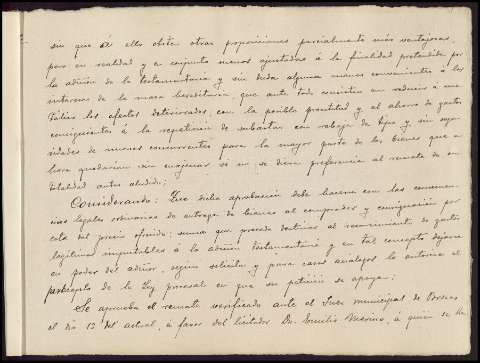 sin que á ello obste otras proposiciones parcialmente más ventajosas,
pero en realidad y en conjunto menos ajustadas á la finalidad pretendida por
la adición de la testamentaría y sin duda alguna menos convenientes á los
intereses de la masa hereditaria, que ante todo consisten en reducir á me-
tálico los efectos deteriorados, con la posible prontitud y el ahorro de gastos
consiguientes á la repetición de subastas con rebaja de tipo y sin segu-
ridades de nuevos concurrentes para la mayor parte de los bienes que a-
hora quedarían sin enajenar si no se diera preferencia al remate de su
totalidad antes aludido;
Considerando: Que dicha aprobación debe hacerse con las consecuen-
cias legales ordinarias de entrega de bienes al comprador y consignación por
esta del precio ofrecido, suma que procede destinar al resarcimiento de gastos
legítimos imputables á la adición testamentaría y en tal concepto dejarse
en poder del adtor, según solicita, y para casos análogos lo autoriza el
precepto de la Ley procesal en que su petición se apoya;
Se aprueba el remate verificado ante el Juez municipal de
el día 12 del actual, á favor del licitador Dn. Emilio Merino, á quien se ha